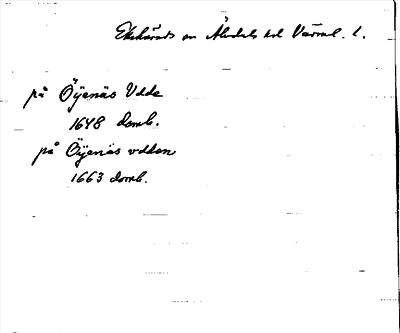 Ekshärads sn Älvdals hd Värml. l.
på Öijenäs Vdde
1648 domb.
på Öijenäs vdden
1663 domb.